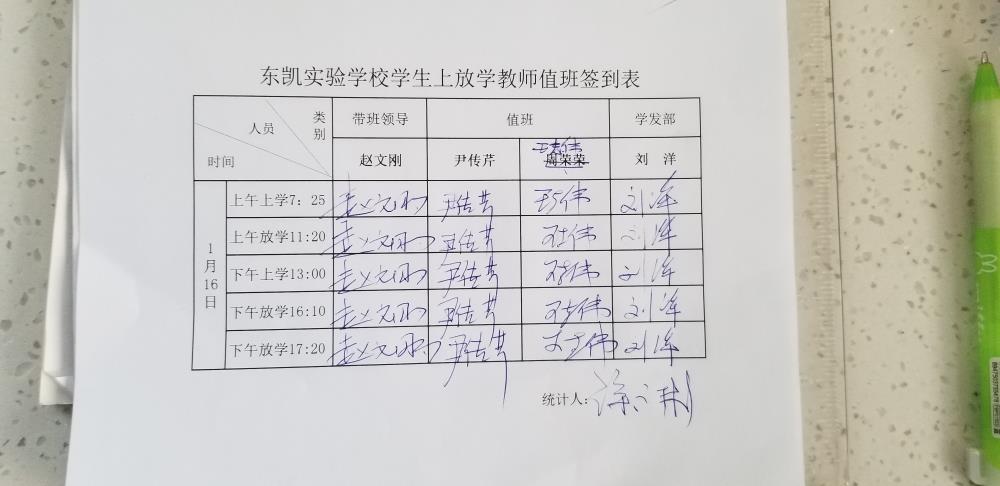 东凯实验学校学生上放学教师值班签到表
人员 类别 带班领导 值班 学发部
时间 赵文刚 尹传芹 周荣荣 刘洋
1月16日
上午上学7:25 赵文刚 尹传芹 刘洋
上午放学11:20 赵文刚 尹传芹 刘洋
下午上学13:00 赵文刚 尹传芹 刘洋
下午放学16:10 赵文刚 尹传芹 刘洋
下午放学17:20 赵文刚 尹传芹 刘洋
统计人: